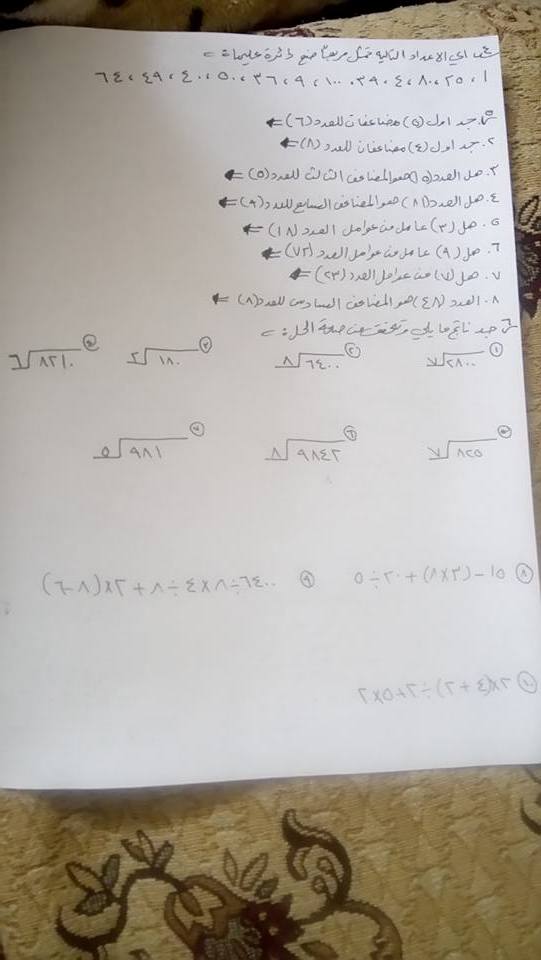 اي الاعداد التالية تمثل مربعاً ضع دائرة عليها :-
١ ، ٢٥ ، ٨٠ ، ٤ ، ٣٩ ، ١٠٠ ، ٩ ، ٣٦ ، ٥٠ ، ٤٠ ، ٤٩ ، ٦٤
جد اول (٥) مضاعفات للعدد (٦) ←
٢. جد اول (٤) مضاعفات للعدد (٨) ←
٣. هل العدد (١٥) هو المضاعف الثالث للعدد (٥) ←
٤. هل العدد (٨١) هو المضاعف السابع للعدد (٩) ←
٥. هل (٣) عامل من عوامل العدد (١٨) ←
٦. هل (٩) عامل من عوامل العدد (٧٢) ←
٧. هل (٧) من عوامل العدد (٢٣) ←
٨. العدد (٤٨) هو المضاعف السادس للعدد (٨) ←
جد ناتج ما يلي وتحقق من صحة الحل :-
① ٧√٢٨٠٠ ② ٨√٦٤٠٠ ③ ٢√١٨٠ ④ ٦√٨٢١٠
⑤ ٧√٨٢٥ ⑥ ٨√٩٨٤٢ ⑦ ٥√٩٨١
⑧ ١٥ - (٣×٨) + ٢٠ ÷ ٥ ⑨ ٦٤٠٠ ÷ ٨ × ٤ ÷ ٨ + ٢ × (٨ - ٦)
⑩ ٢ × (٤ + ٢) ÷ ٢ + ٥ × ٢